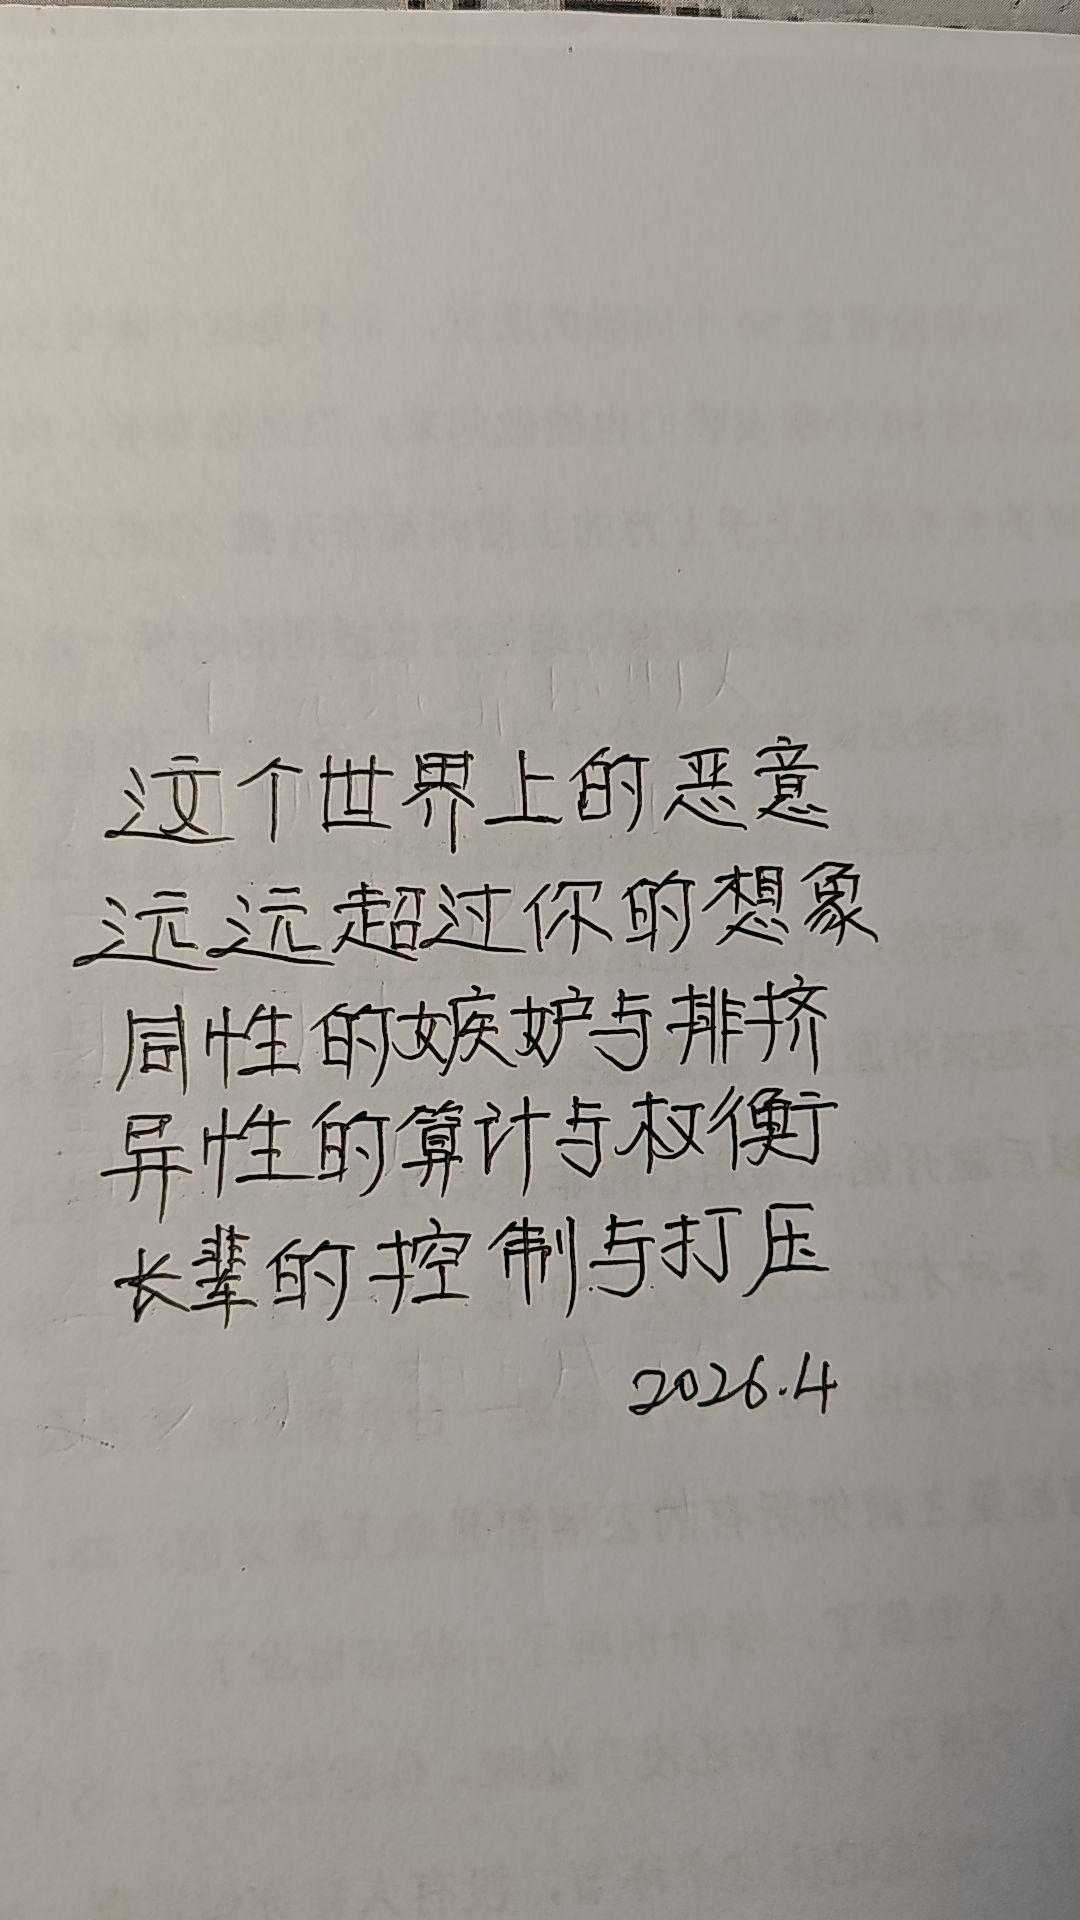 这个世界上的恶意
远远超过你的想象
同性的嫉妒与排挤
异性的算计与权衡
长辈的控制与打压
2026.4